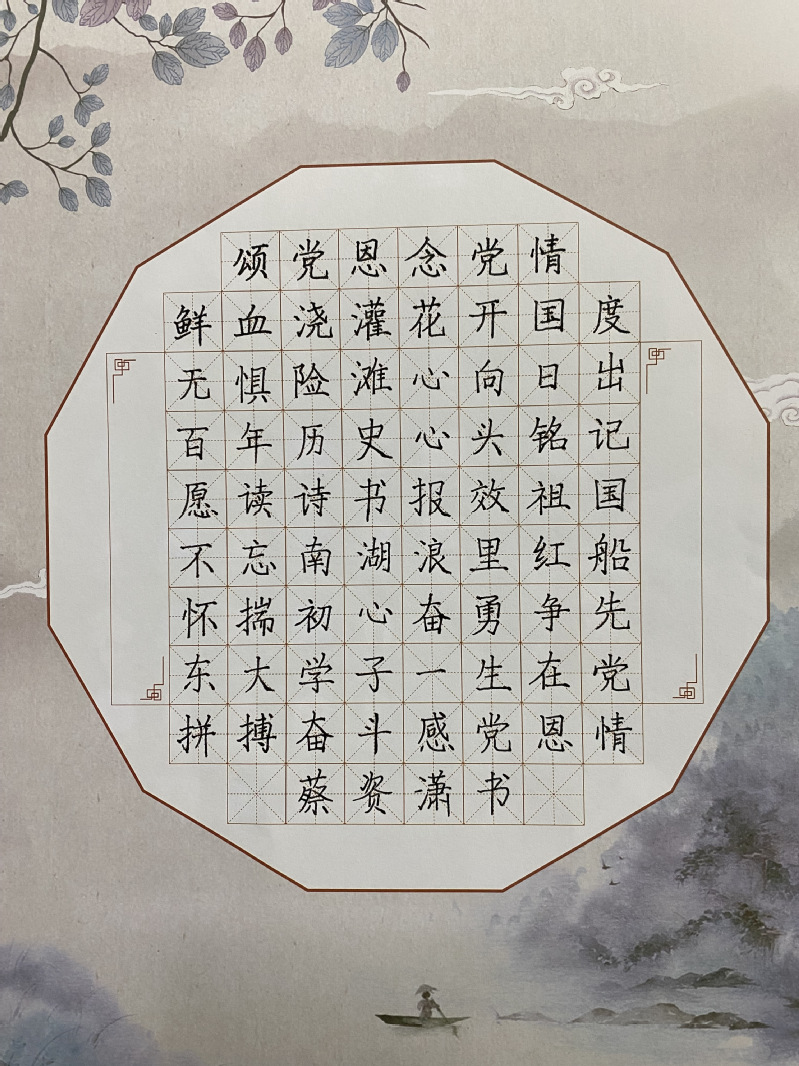 颂党恩念党情
鲜血浇灌花开国度
无惧险滩心向日出
百年历史心头铭记
愿读诗书报效祖国
不忘南湖浪里红船
怀揣初心奋勇争先
东大学子一生在党
拼搏奋斗感党恩情
蔡资潇书